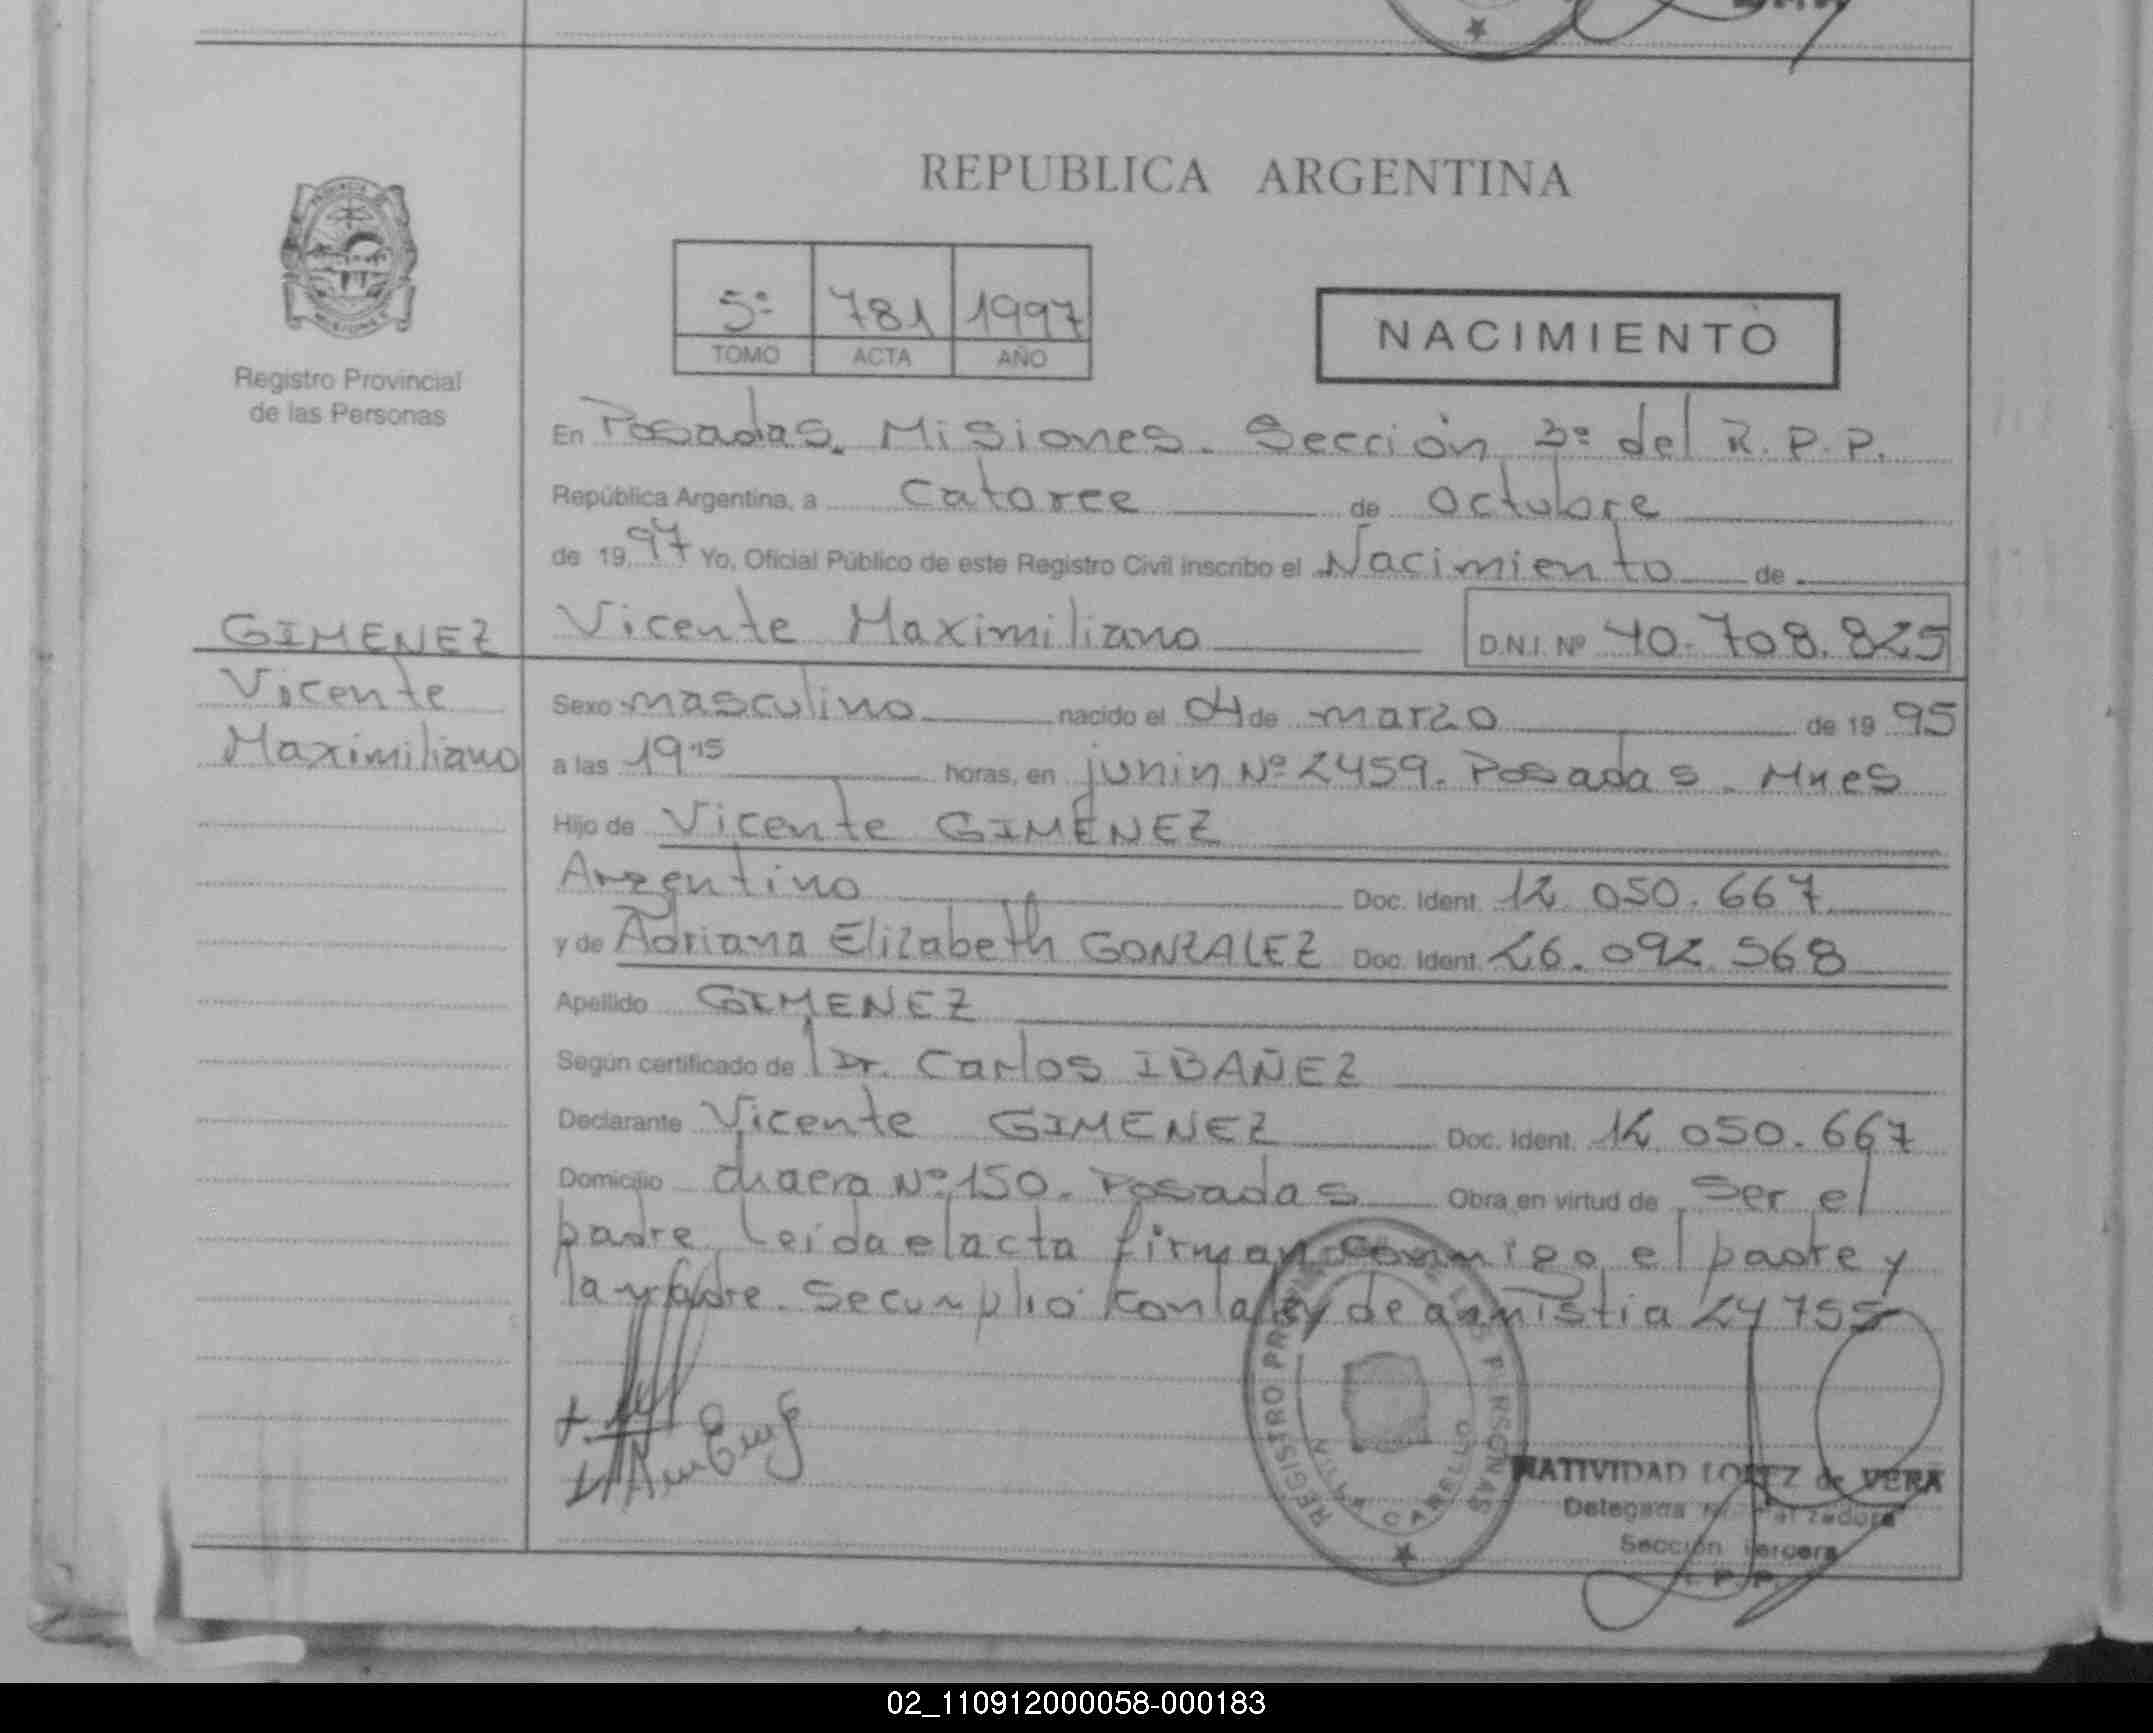 REPUBLICA ARGENTINA
Registro Provincial
de las Personas
5º 781 1997
TOMO ACTA AÑO
NACIMIENTO
En Posadas. Misiones. Sección 3º del R.P.P.
República Argentina, a Catorce de Octubre
de 1997 Yo, Oficial Público de este Registro Civil inscribo el Nacimiento de
GIMENEZ
Vicente
Maximiliano
Vicente Maximiliano D.N.I. Nº 40.708.825
Sexo masculino nacido el 04 de marzo de 1995
a las 19.15 horas, en junin Nº 2459. Posadas. Mnes
Hijo de Vicente GIMENEZ
Argentino Doc. Ident. 12.050.667
y de Adriana Elizabeth GONZALEZ Doc. Ident. 26.092.568
Apellido GIMENEZ
Según certificado de l Dr. Carlos IBAÑEZ
Declarante Vicente GIMENEZ Doc. Ident. 12.050.667
Domicilio chacra Nº 150. Posadas Obra en virtud de Ser el
padre. Leida el acta firman conmigo el padre y
la madre. Se cumplió con la ley de amnistia 24755
REGISTRO PROVINCIAL DE LAS PERSONAS
NATIVIDAD LOPEZ de VERA
Delegada
Sección Tercera
R.P.P.
02_110912000058-000183